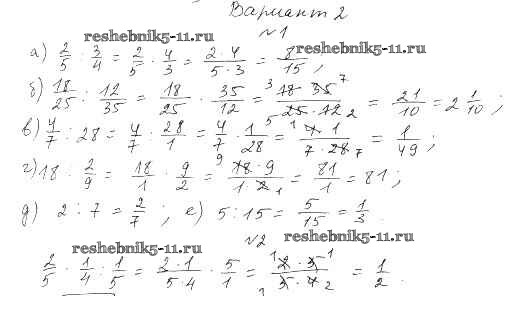 Вариант 2
reshebnik5-11.ru
№1
а) 2/5 : 3/4 = 2/5 · 4/3 = 2·4/5·3 = 8/15 ;
reshebnik5-11.ru
б) 18/25 : 12/35 = 18/25 · 35/12 = 3 18 35 7 / 5 25 · 12 2 = 21/10 = 2 1/10 ;
в) 4/7 : 28 = 4/7 : 28/1 = 4/7 · 1/28 = 1 4·1 / 7·28 7 = 1/49 ;
г) 18 : 2/9 = 18/1 · 9/2 = 9 18·9 / 1·2 1 = 81/1 = 81 ;
д) 2 : 7 = 2/7 ; е) 5 : 15 = 5/15 = 1/3 .
reshebnik5-11.ru
№2
reshebnik5-11.ru
2/5 · 1/4 : 1/5 = 2·1/5·4 · 5/1 = 1 2·5 1 / 1 5·4 2 = 1/2 .